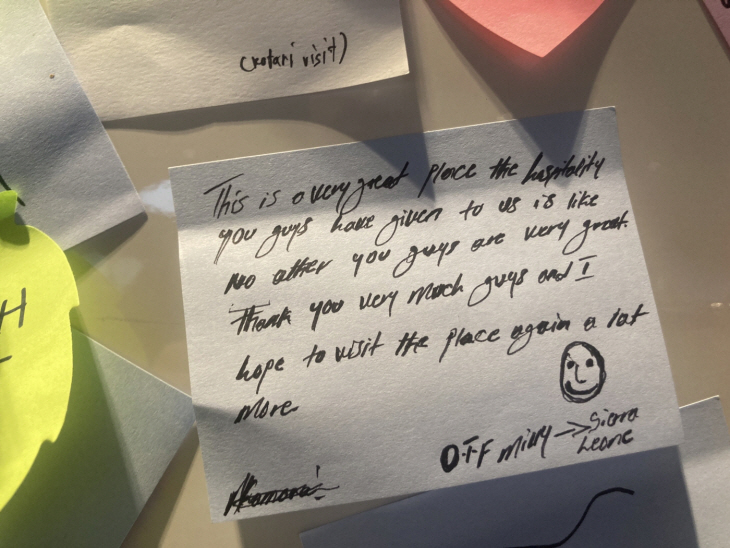 (kotari visit)
This is a very great place the hospitality
you guys have given to us is like
no other you guys are very great.
Thank you very much guys and I
hope to visit the place again a lot
more.
Sierra
Leone
H